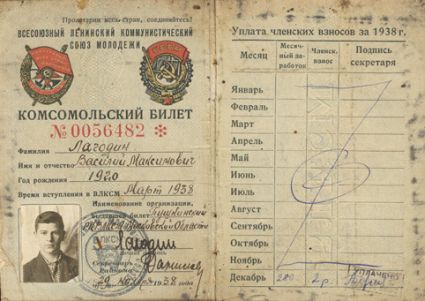 Пролетарии всех стран, соединяйтесь!
ВСЕСОЮЗНЫЙ ЛЕНИНСКИЙ КОММУНИСТИЧЕСКИЙ
СОЮЗ МОЛОДЕЖИ
КОМСОМОЛЬСКИЙ БИЛЕТ
№ 0056482 *
Фамилия Лагодин
Имя и отчество Василий Максимович
Год рождения 1920
Время вступления в ВЛКСМ Март 1938
Наименование организации,
выдавшей билет
Московской Области
ВЛКСМ
Лагодин
Секретарь
Райкома
1938 года
Уплата членских взносов за 1938 г.
Месяц
Месячный заработок
Членск. взнос
Подпись секретаря
Январь
Февраль
Март
Апрель
Май
Июнь
Июль
Август
Сентябрь
Октябрь
Ноябрь
Декабрь 2 р.
УПЛАЧЕНО